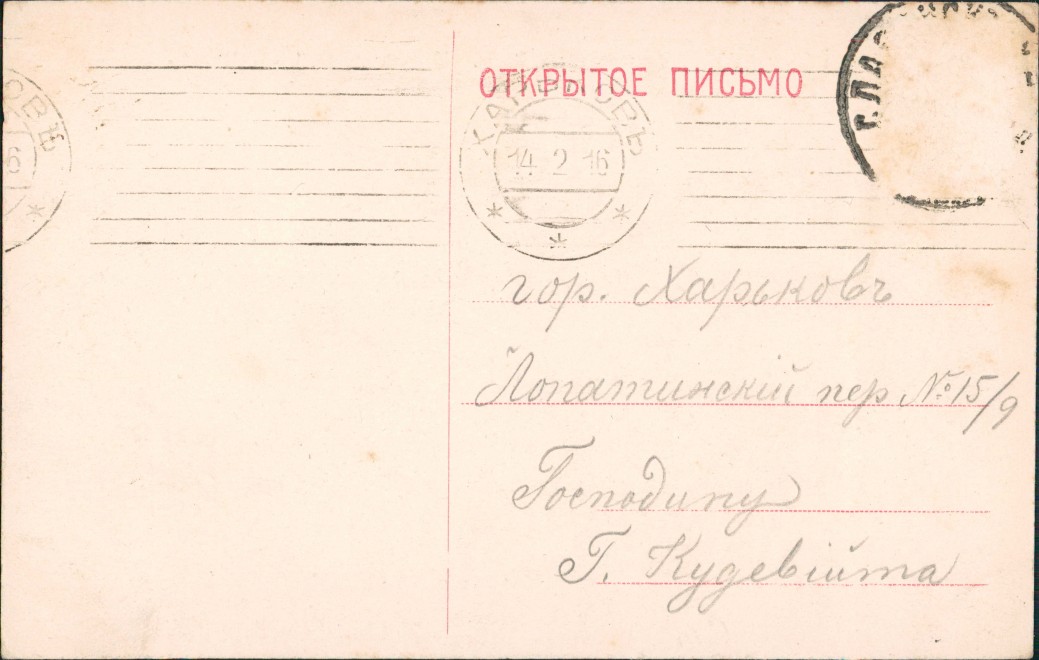 ОТКРЫТОЕ ПИСЬМО
ХАРЬКОВЪ
14 2 16
гор. Харьковъ
Лопатинскій пер №15/9
Господину
Г. Кудевійта